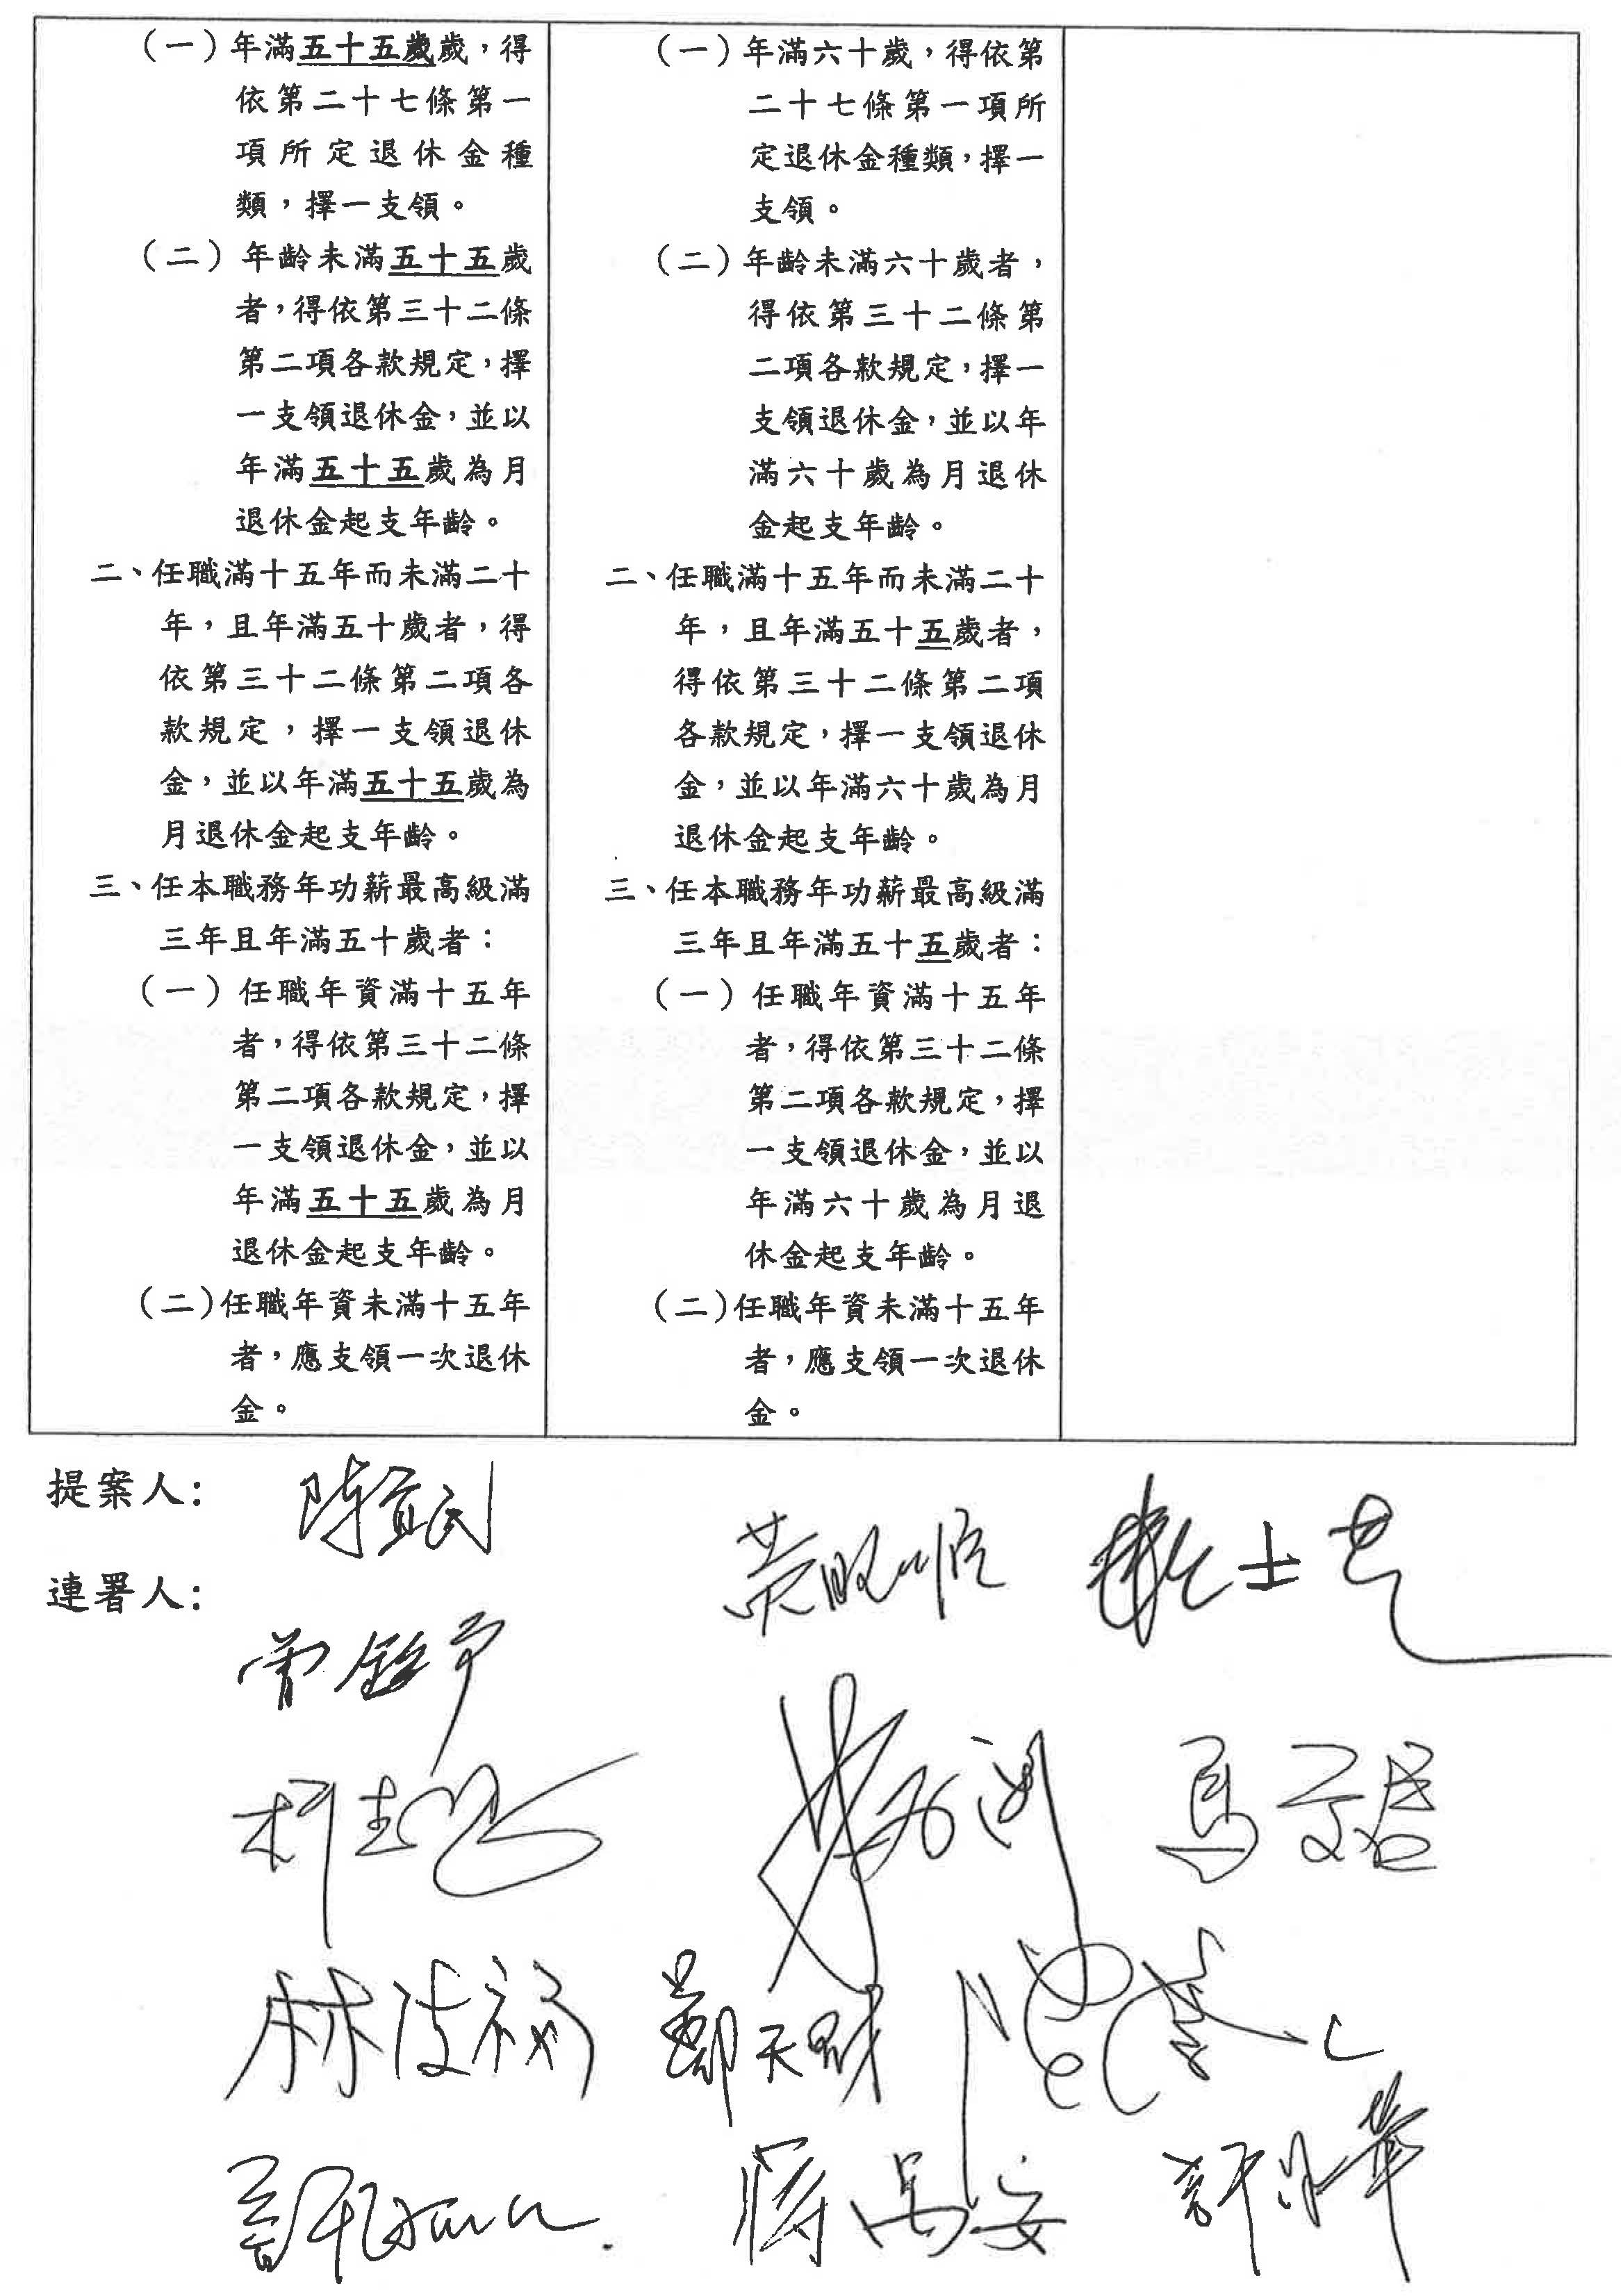 （一）年滿五十五歲歲，得
依第二十七條第一
項所定退休金種
類，擇一支領。
（二）年齡未滿五十五歲
者，得依第三十二條
第二項各款規定，擇
一支領退休金，並以
年滿五十五歲為月
退休金起支年齡。
二、任職滿十五年而未滿二十
年，且年滿五十歲者，得
依第三十二條第二項各
款規定，擇一支領退休
金，並以年滿五十五歲為
月退休金起支年齡。
三、任本職務年功薪最高級滿
三年且年滿五十歲者：
（一）任職年資滿十五年
者，得依第三十二條
第二項各款規定，擇
一支領退休金，並以
年滿五十五歲為月
退休金起支年齡。
（二）任職年資未滿十五年
者，應支領一次退休
金。
（一）年滿六十歲，得依第
二十七條第一項所
定退休金種類，擇一
支領。
（二）年齡未滿六十歲者，
得依第三十二條第
二項各款規定，擇一
支領退休金，並以年
滿六十歲為月退休
金起支年齡。
二、任職滿十五年而未滿二十
年，且年滿五十五歲者，
得依第三十二條第二項
各款規定，擇一支領退休
金，並以年滿六十歲為月
退休金起支年齡。
三、任本職務年功薪最高級滿
三年且年滿五十五歲者：
（一）任職年資滿十五年
者，得依第三十二條
第二項各款規定，擇
一支領退休金，並以
年滿六十歲為月退
休金起支年齡。
（二）任職年資未滿十五年
者，應支領一次退休
金。
提案人：
連署人：
馬文君
鄭天財